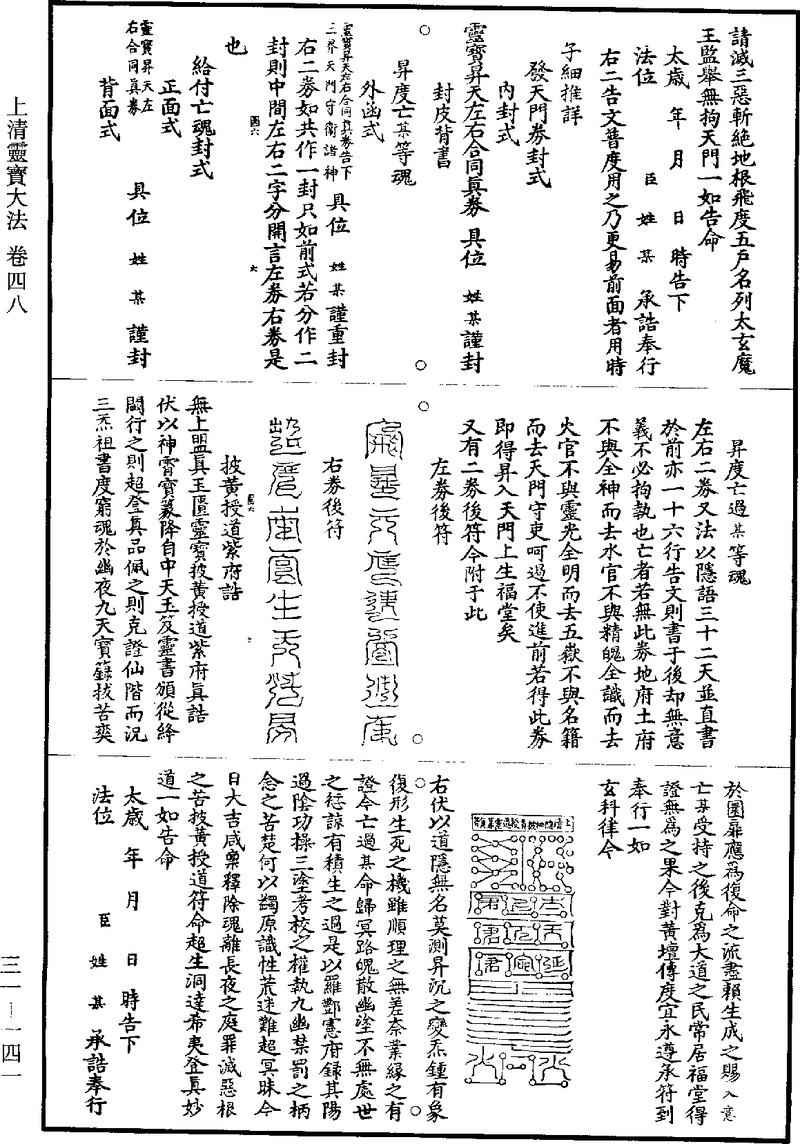 請滅三惡斬絕地根飛度五戶名列太玄魔
王監舉無拘天門一如告命
太歲 年 月 日 時告下
法位 臣 姓 某 承誥奉行
右二告文普度用之乃更易前面者用時
子細推詳
發天門券封式
內封式
靈寶昇天左右合同眞券 具位 姓某謹封
封皮背書
昇度亡某等魂
外函式
靈寶昇天左右合同眞券告下
三界天門守衛諸神 具位 姓某謹重封
右二券如共作一封只如前式若分作二
封則中間左右二字分開言左券右券是
也
給付亡魂封式
正面式
靈寶昇天左
右合同眞券 具位 姓某 謹封
背面式
昇度亡過某等魂
左右二券又法以隱語三十二天並直書
於前亦一十六行告文則書于後却無意
義不必拘執也亡者若無此券地府土府
不與全神而去水官不與精魄全識而去
火官不與靈光全明而去五嶽不與名籍
而去天門守吏呵過不使進前若得此券
即得昇入天門上生福堂矣
又有二券後符今附于此
左券後符
右券後符
披黃授道紫府誥
無上盟眞玉匱靈寶披黃授道紫府眞誥
伏以神霄寶籙降自中天玉笈靈書頒從絳
闕行之則超登眞品佩之則克證仙階而況
三炁祖書度窮魂於幽夜九天寶籙拔苦爽
於圜扉應爲復命之流盡賴生成之賜入意
亡某受持之後克爲大道之民常居福堂得
證無爲之果今對黃壇傳度宜永遵承符到
奉行一如
玄科律令
右伏以道隱無名莫測昇沉之變炁鍾有象
復形生死之機雖順理之無差奈業緣之有
證今亡過某命歸冥路魄散幽塗不無處世
之愆諒有積生之過是以羅酆憲府録其陽
過陰功操三塗考校之權執九幽禁罰之柄
念之苦楚何以蠲原識性荒迷難超冥昧今
日大吉咸稟釋除魂離長夜之庭罪滅惡根
之苦披黃授道符命超生洞達希夷登眞妙
道一如告命
太歲 年 月 日 時告下
法位 臣 姓 某 承誥奉行
上清靈寶大法 卷四八
三一—一四一